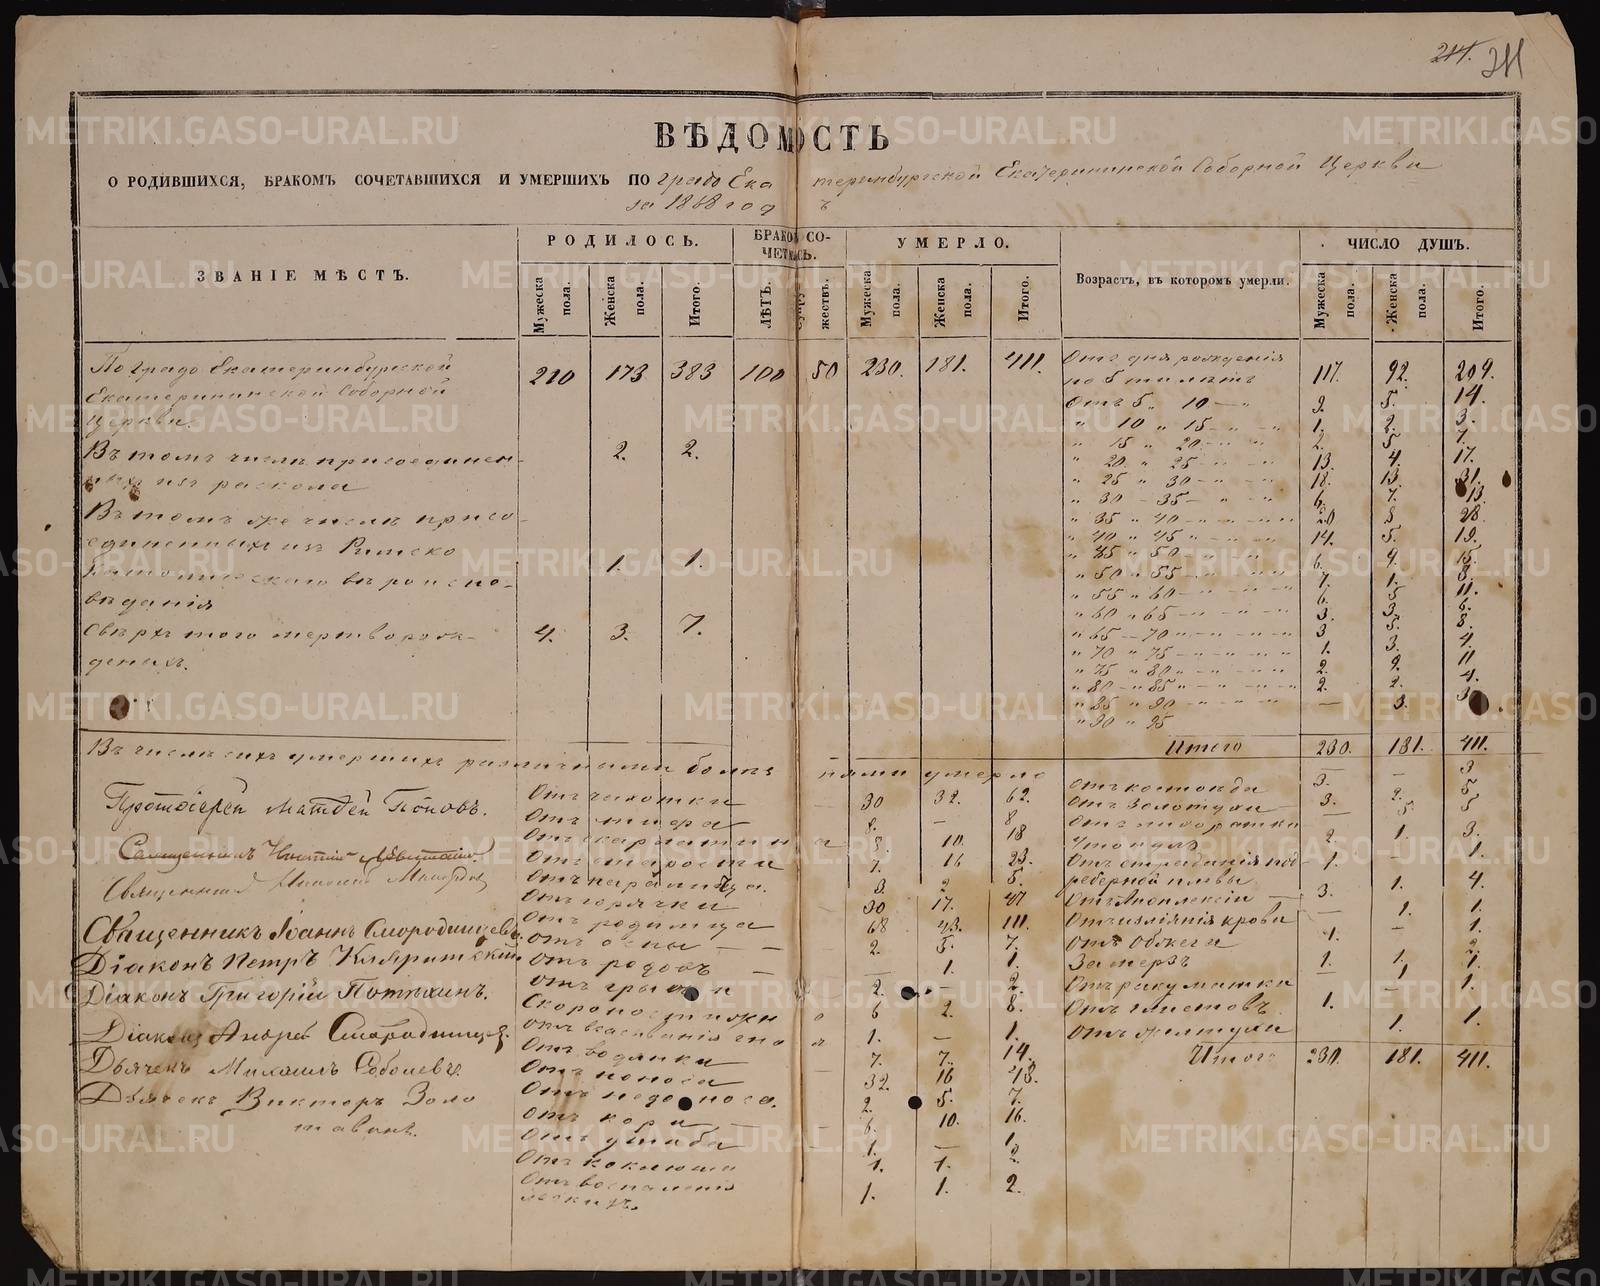 214. 211
ВѢДОМОСТЬ
О РОДИВШИХСЯ, БРАКОМЪ СОЧЕТАВШИХСЯ И УМЕРШИХЪ ПО градо Екатеринбургской Екатерининской Соборной Церкви
за 1868 годъ
ЗВАНІЕ МѢСТЪ.
РОДИЛОСЬ.
БРАКОМ СО-
ЧЕТАЛОСЬ.
УМЕРЛО.
Возрастъ, въ которомъ умерли.
ЧИСЛО ДУШЪ.
Мужеска пола. Женска пола. Итого. ЛѢТЪ. Супружествъ. Мужеска пола. Женска пола. Итого. Мужеска пола. Женска пола. Итого.
По градо Екатеринбургской 210 173 383 100 50 230. 181. 411. Отъ дня рожденія
Екатерининской Соборной по 5 ти лѣтъ 117. 92. 209.
Церкви. Отъ 5 " 10 — " 9. 5. 14.
" 10 " 15 — " 1. 2. 3.
Въ томъ числѣ присоединен- 2. 2. " 15 " 20 — " 2. 5 7.
ныхъ изъ раскола " 20 " 25 — " 13. 4. 17.
" 25 " 30 — " 18. 13. 31.
Въ томъ же числѣ присо- " 30 — 35 — " 6. 7. 13.
единенныхъ изъ Римско " 35 " 40 — " 20 8 28.
католическаго вѣроиспо- 1. 1. " 40 " 45 — " 14. 5. 19.
вѣданія " 45 " 50 — " 6. 9. 15.
" 50 " 55 — " 7. 1. 8.
" 55 " 60 — " 6. 5 11.
Сверхъ того мертворож- 4. 3. 7. " 60 " 65 — " 3. 3. 6.
деныхъ. " 65 — 70 — " 3 5. 8.
" 70 " 75 — " 1. 3. 4.
" 75 " 80 — " 2. 9. 11
" 80 — 85 " — " 2. 2. 4.
" 85 " 90 — " — 3. 3
" 90 " 95
Итого 230. 181. 411.
Въ числѣ сихъ умершихъ различными болѣзнями умерло
Протоіерей Матвей Поповъ.
Священникъ
Священникъ
Священникъ Іоаннъ Смородинцевъ
Діаконъ Петръ
Діаконъ Григорій Потѣхинъ.
Діаконъ Андрей Смородинцев.
Дьячекъ Михаилъ Соболевъ
Дьячекъ Викторъ Золо
тавинъ.
Отъ чахотки 30 32. 62.
Отъ тифа 8. — 8
Отъ скарлатины 8. 10. 18
Отъ старости 7. 16 23.
Отъ паралича. 3. 2 5.
Отъ горячки 30 17. 47
Отъ родимца 68 43. 111.
Отъ оспы 2. 5. 7.
Отъ родовъ — 1. 1.
Отъ грыжи 2. — 2.
Скоропостижно 6 2. 8.
1. — 1.
Отъ водянки 7. 7. 14.
Отъ поноса 32. 16 48.
Отъ недоноса. 2. 5. 7.
Отъ кори 6. 10. 16.
Отъ ушиба 1. — 1.
Отъ коклюша 1. 1. 2.
Отъ воспаленія
легкихъ. 1. 1. 2.
3. — 3
Отъ золотухи 3. 2. 5
Отъ лихорадки — 5. 5
Утонулъ 2. 1. 3.
Отъ страданія под- 1. — 1.
реберной плевы
Отъ Апоплексіи 3. 1. 4.
Отъ изліянія крови — 1. 1.
Отъ обжега 1. — 1.
Замерзъ 1. 1. 2.
Отъ ревматизма — 1 1.
Отъ глистовъ 1. — 1.
Отъ желтухи 1. 1.
Итого 230. 181. 411.
METRIKI.GASO-URAL.RU